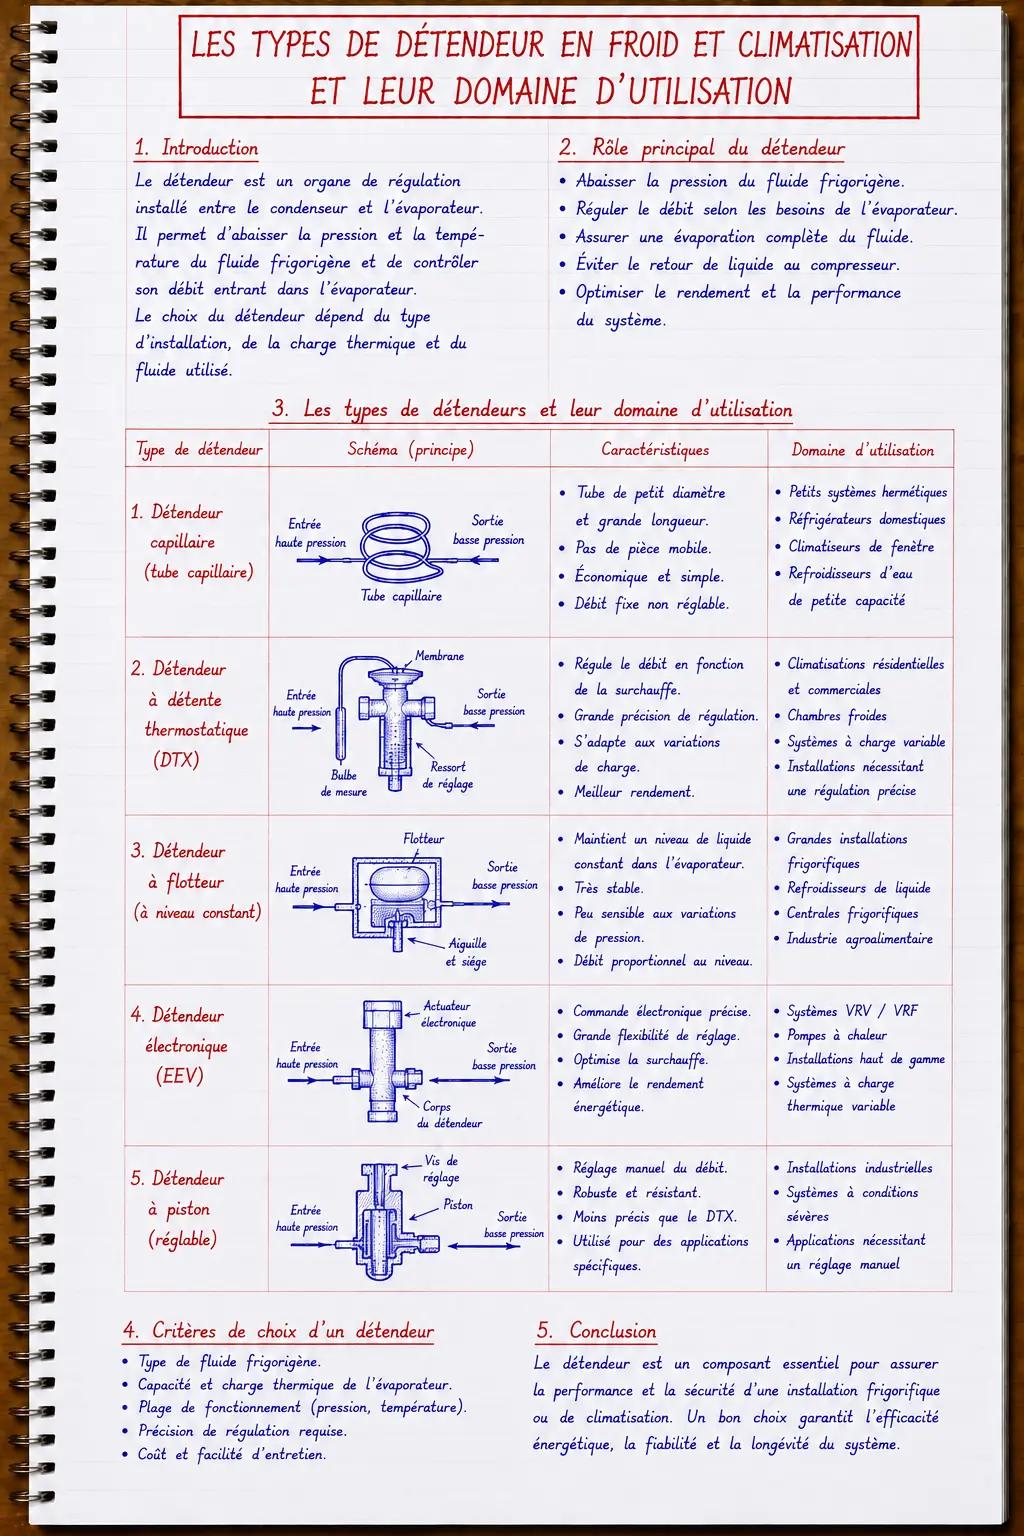 LES TYPES DE DÉTENDEUR EN FROID ET CLIMATISATION
ET LEUR DOMAINE D'UTILISATION
1. Introduction
Le détendeur est un organe de régulation
installé entre le condenseur et l'évaporateur.
Il permet d'abaisser la pression et la tempé-
rature du fluide frigorigène et de contrôler
son débit entrant dans l'évaporateur.
Le choix du détendeur dépend du type
d'installation, de la charge thermique et du
fluide utilisé.
2. Rôle principal du détendeur
• Abaisser la pression du fluide frigorigène.
• Réguler le débit selon les besoins de l'évaporateur.
• Assurer une évaporation complète du fluide.
• Éviter le retour de liquide au compresseur.
• Optimiser le rendement et la performance
du système.
3. Les types de détendeurs et leur domaine d'utilisation
Type de détendeur
Schéma (principe)
Caractéristiques
Domaine d'utilisation
1. Détendeur
capillaire
(tube capillaire)
Entrée
haute pression
Sortie
basse pression
Tube capillaire
• Tube de petit diamètre
et grande longueur.
• Pas de pièce mobile.
• Économique et simple.
• Débit fixe non réglable.
• Petits systèmes hermétiques
• Réfrigérateurs domestiques
• Climatiseurs de fenêtre
• Refroidisseurs d'eau
de petite capacité
2. Détendeur
à détente
thermostatique
(DTX)
Membrane
Entrée
haute pression
Sortie
basse pression
Bulbe
de mesure
Ressort
de réglage
• Régule le débit en fonction
de la surchauffe.
• Grande précision de régulation.
• S'adapte aux variations
de charge.
• Meilleur rendement.
• Climatisations résidentielles
et commerciales
• Chambres froides
• Systèmes à charge variable
• Installations nécessitant
une régulation précise
3. Détendeur
à flotteur
(à niveau constant)
Flotteur
Entrée
haute pression
Sortie
basse pression
Aiguille
et siége
• Maintient un niveau de liquide
constant dans l'évaporateur.
• Très stable.
• Peu sensible aux variations
de pression.
• Débit proportionnel au niveau.
• Grandes installations
frigorifiques
• Refroidisseurs de liquide
• Centrales frigorifiques
• Industrie agroalimentaire
4. Détendeur
électronique
(EEV)
Actuateur
électronique
Entrée
haute pression
Sortie
basse pression
Corps
du détendeur
• Commande électronique précise.
• Grande flexibilité de réglage.
• Optimise la surchauffe.
• Améliore le rendement
énergétique.
• Systèmes VRV / VRF
• Pompes à chaleur
• Installations haut de gamme
• Systèmes à charge
thermique variable
5. Détendeur
à piston
(réglable)
Vis de
réglage
Piston
Entrée
haute pression
Sortie
basse pression
• Réglage manuel du débit.
• Robuste et résistant.
• Moins précis que le DTX.
• Utilisé pour des applications
spécifiques.
• Installations industrielles
• Systèmes à conditions
sévères
• Applications nécessitant
un réglage manuel
4. Critères de choix d'un détendeur
• Type de fluide frigorigène.
• Capacité et charge thermique de l'évaporateur.
• Plage de fonctionnement (pression, température).
• Précision de régulation requise.
• Coût et facilité d'entretien.
5. Conclusion
Le détendeur est un composant essentiel pour assurer
la performance et la sécurité d'une installation frigorifique
ou de climatisation. Un bon choix garantit l'efficacité
énergétique, la fiabilité et la longévité du système.